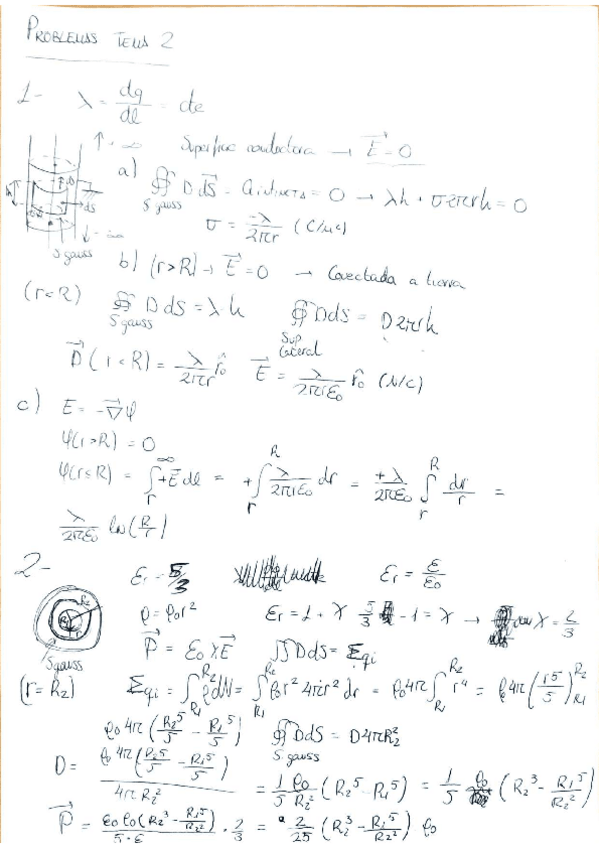 PROBLEMAS TEMA 2
1- λ = dq/dl = cte
↑ +∞ Superficie conductora → E⃗ = 0
a) ∯ D dS⃗ = Q interna = 0 → λh + σ2πrh = 0
S gauss
σ = -λ/2πr (C/m²)
dS
S gauss
b) (r>R) → E⃗ = 0 → Conectada a tierra
(r<R) ∯ D dS = λh ∯ D dS = D2πrh
S gauss Sup lateral
D⃗ (r<R) = λ/2πr r̂₀ E⃗ = λ/2πrε₀ r̂₀ (N/C)
c) E = -∇⃗φ
φ(r>R) = 0
φ(r≤R) = ∫_r^∞ +E⃗ dl = +∫_r^R λ/2πrε₀ dr = +λ/2πε₀ ∫_r^R dr/r =
λ/2πε₀ ln(R/r)
2- εr = 5/3 εr = ε/ε₀
R₂
R₁
S gauss
ρ = ρ₀r² εr = 1 + χ 5/3 - 1 = χ → χ = 2/3
P⃗ = ε₀χE⃗ ∬ D dS = Σqi
(r = R₂) Σqi = ∫_R₁^R₂ ρ dV = ∫_R₁^R₂ ρ₀r² 4πr² dr = ρ₀4π ∫_R₁^R₂ r⁴ = ρ₀4π (r⁵/5)_R₁^R₂
ρ₀4π (R₂⁵/5 - R₁⁵/5) ∯ D dS = D4πR₂²
S gauss
D = ρ₀4π (R₂⁵/5 - R₁⁵/5) / 4πR₂² = 1/5 ρ₀/R₂² (R₂⁵ - R₁⁵) = 1/5 ρ₀ (R₂³ - R₁⁵/R₂²)
P⃗ = ε₀ρ₀(R₂³ - R₁⁵/R₂²) / 5·ε · 2/3 = 2/25 (R₂³ - R₁⁵/R₂²) ρ₀